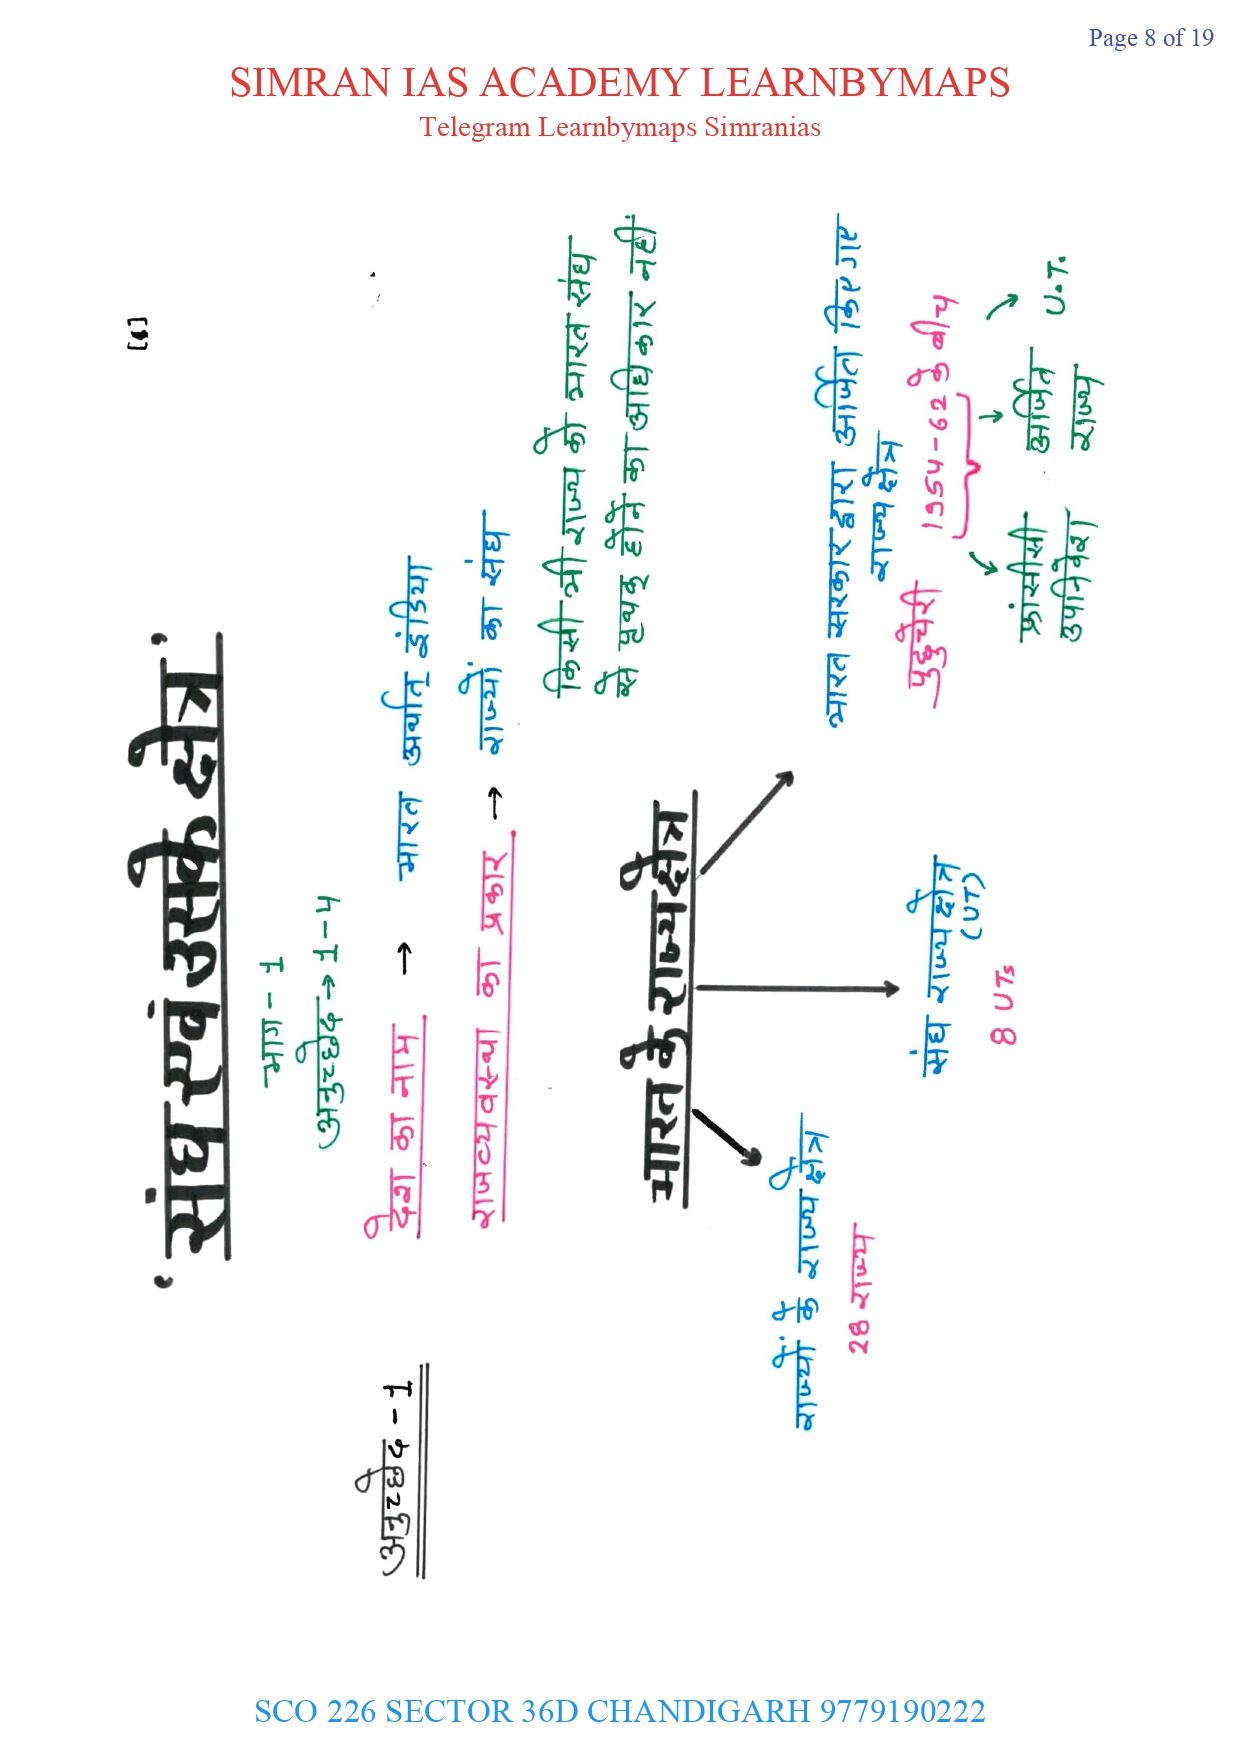 Page 8 of 19
SIMRAN IAS ACADEMY LEARNBYMAPS
Telegram Learnbymaps Simranias
'संघ एवं उसके क्षेत्र'
भाग - 1
अनुच्छेद → 1-4
अनुच्छेद - 1
देश का नाम → भारत अर्थात् इंडिया
राजव्यवस्था का प्रकार → राज्यों का संघ
किसी भी राज्य को भारत संघ
से पृथक् होने का अधिकार नहीं
भारत के राज्यक्षेत्र
राज्यों के राज्यक्षेत्र
28 राज्य
संघ राज्यक्षेत्र
(UT)
8 UTs
भारत सरकार द्वारा अर्जित किए गए
राज्यक्षेत्र
पुदुचेरी 1954-62 के बीच
फ्रांसीसी
उपनिवेश
अर्जित
राज्य
U.T.
SCO 226 SECTOR 36D CHANDIGARH 9779190222